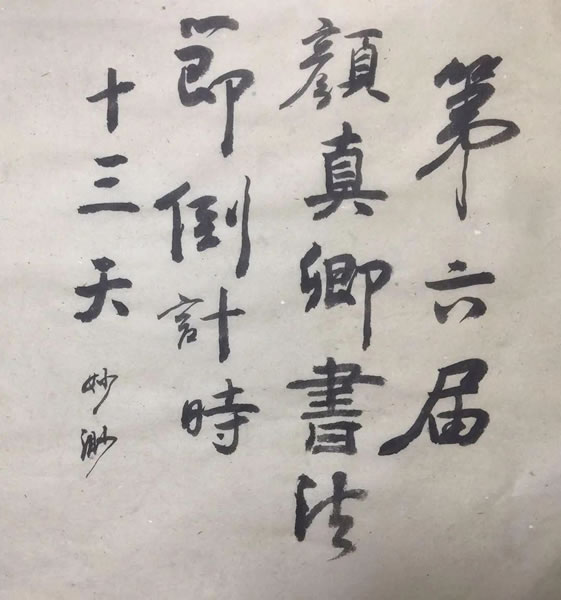 第六届
顏真卿書法
節倒計時
十三天
妙渺